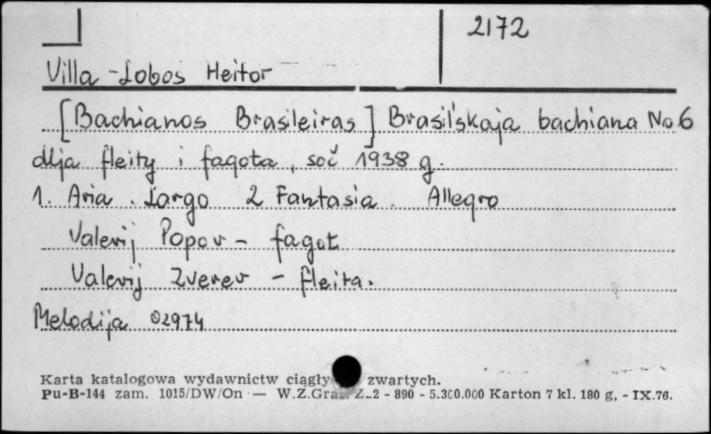 2172
Villa-Lobos Heitor
[Bachianos Brasileiras] Brasil'skaja bachiana No 6
dlja fleity i fagota, soč 1938 g.
1. Aria. Largo 2 Fantasia. Allegro
Valerij Popov - fagot
Valerij Zverev - fleita.
Melodija 02974
Karta katalogowa wydawnictw zwartych.
Pu-B-144 zam. 1015/DW/On — W.Z.Graf. Z-2 - 890 - 5.300.000 Karton 7 kl. 180 g, - IX.76.